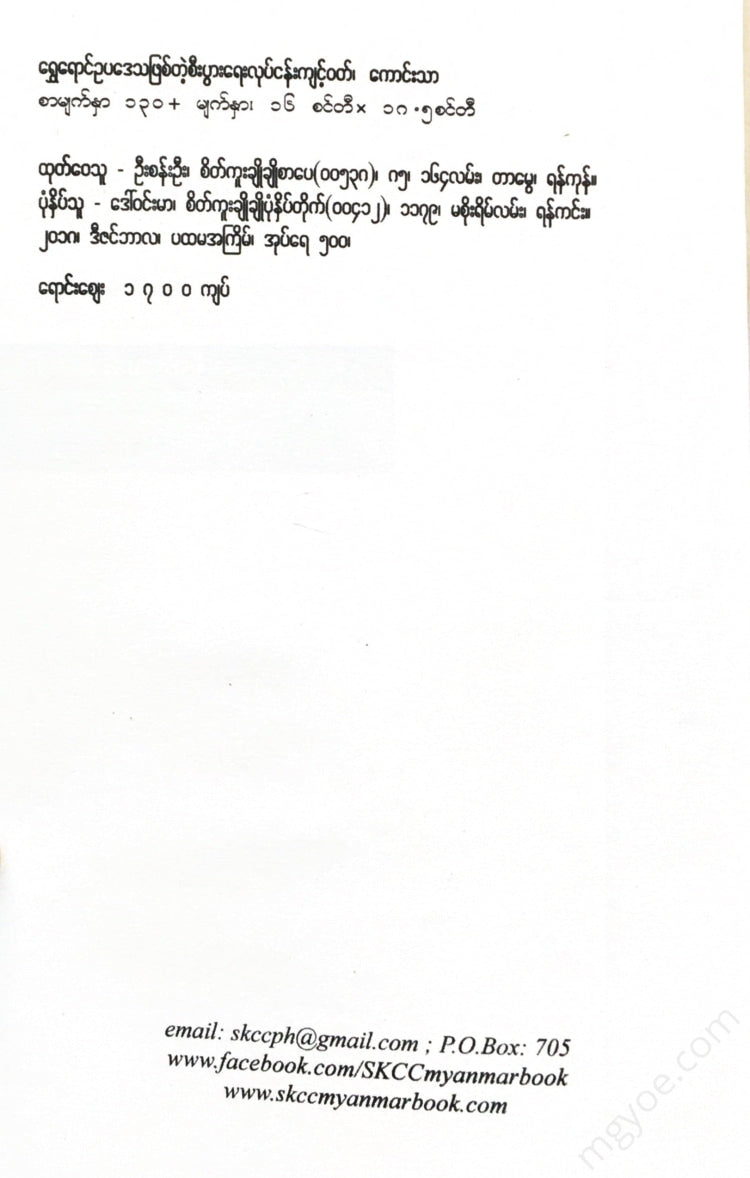 ရွှေရောင်ဥပဒေသဖြစ်တဲ့စီးပွားရေးလုပ်ငန်းကျင့်ဝတ်၊ ကောင်းသာ
စာမျက်နှာ ၁၃၀ + မျက်နှာ၊ ၁၆ စင်တီ × ၁၈.၅စင်တီ
ထုတ်ဝေသူ - ဦးစန်းဦး၊ စိတ်ကူးချိုချိုစာပေ(၀၀၅၃၈)၊ ၈၅၊ ၁၆၄လမ်း၊ တာမွေ၊ ရန်ကုန်။
ပုံနှိပ်သူ - ဒေါ်ဝင်းမာ၊ စိတ်ကူးချိုချိုပုံနှိပ်တိုက်(၀၀၄၁၂)၊ ၁၁၇၉၊ မစိုးရိမ်လမ်း၊ ရန်ကင်း။
၂၀၁၈၊ ဒီဇင်ဘာလ၊ ပထမအကြိမ်၊ အုပ်ရေ ၅၀၀၊
ရောင်းဈေး ၁ ၇ ၀ ၀ ကျပ်
email: skccph@gmail.com ; P.O.Box: 705
www.facebook.com/SKCCmyanmarbook
www.skccmyanmarbook.com
mgyoe.com